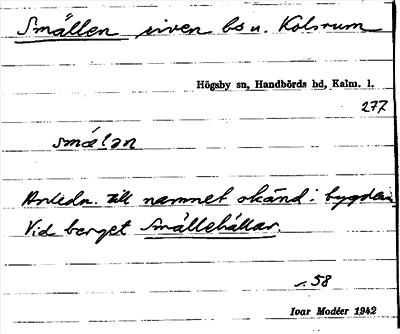 Smällen även bs u. Kolsrum
Högsby sn, Handbörds hd, Kalm. l.
277
smälən
Anledn. till namnet okänd i bygden.
Vid berget Smällehällar.
58
Ivar Modéer 1942